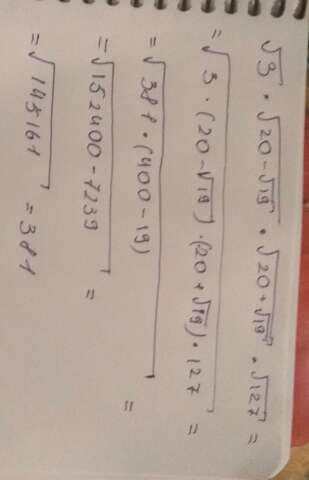 √3 · √20-√19 · √20+√19 · √127 =
= √3 · (20-√19) · (20+√19) · 127 =
= √381 · (400-19) =
= √152400-7239 =
= √145161 = 381